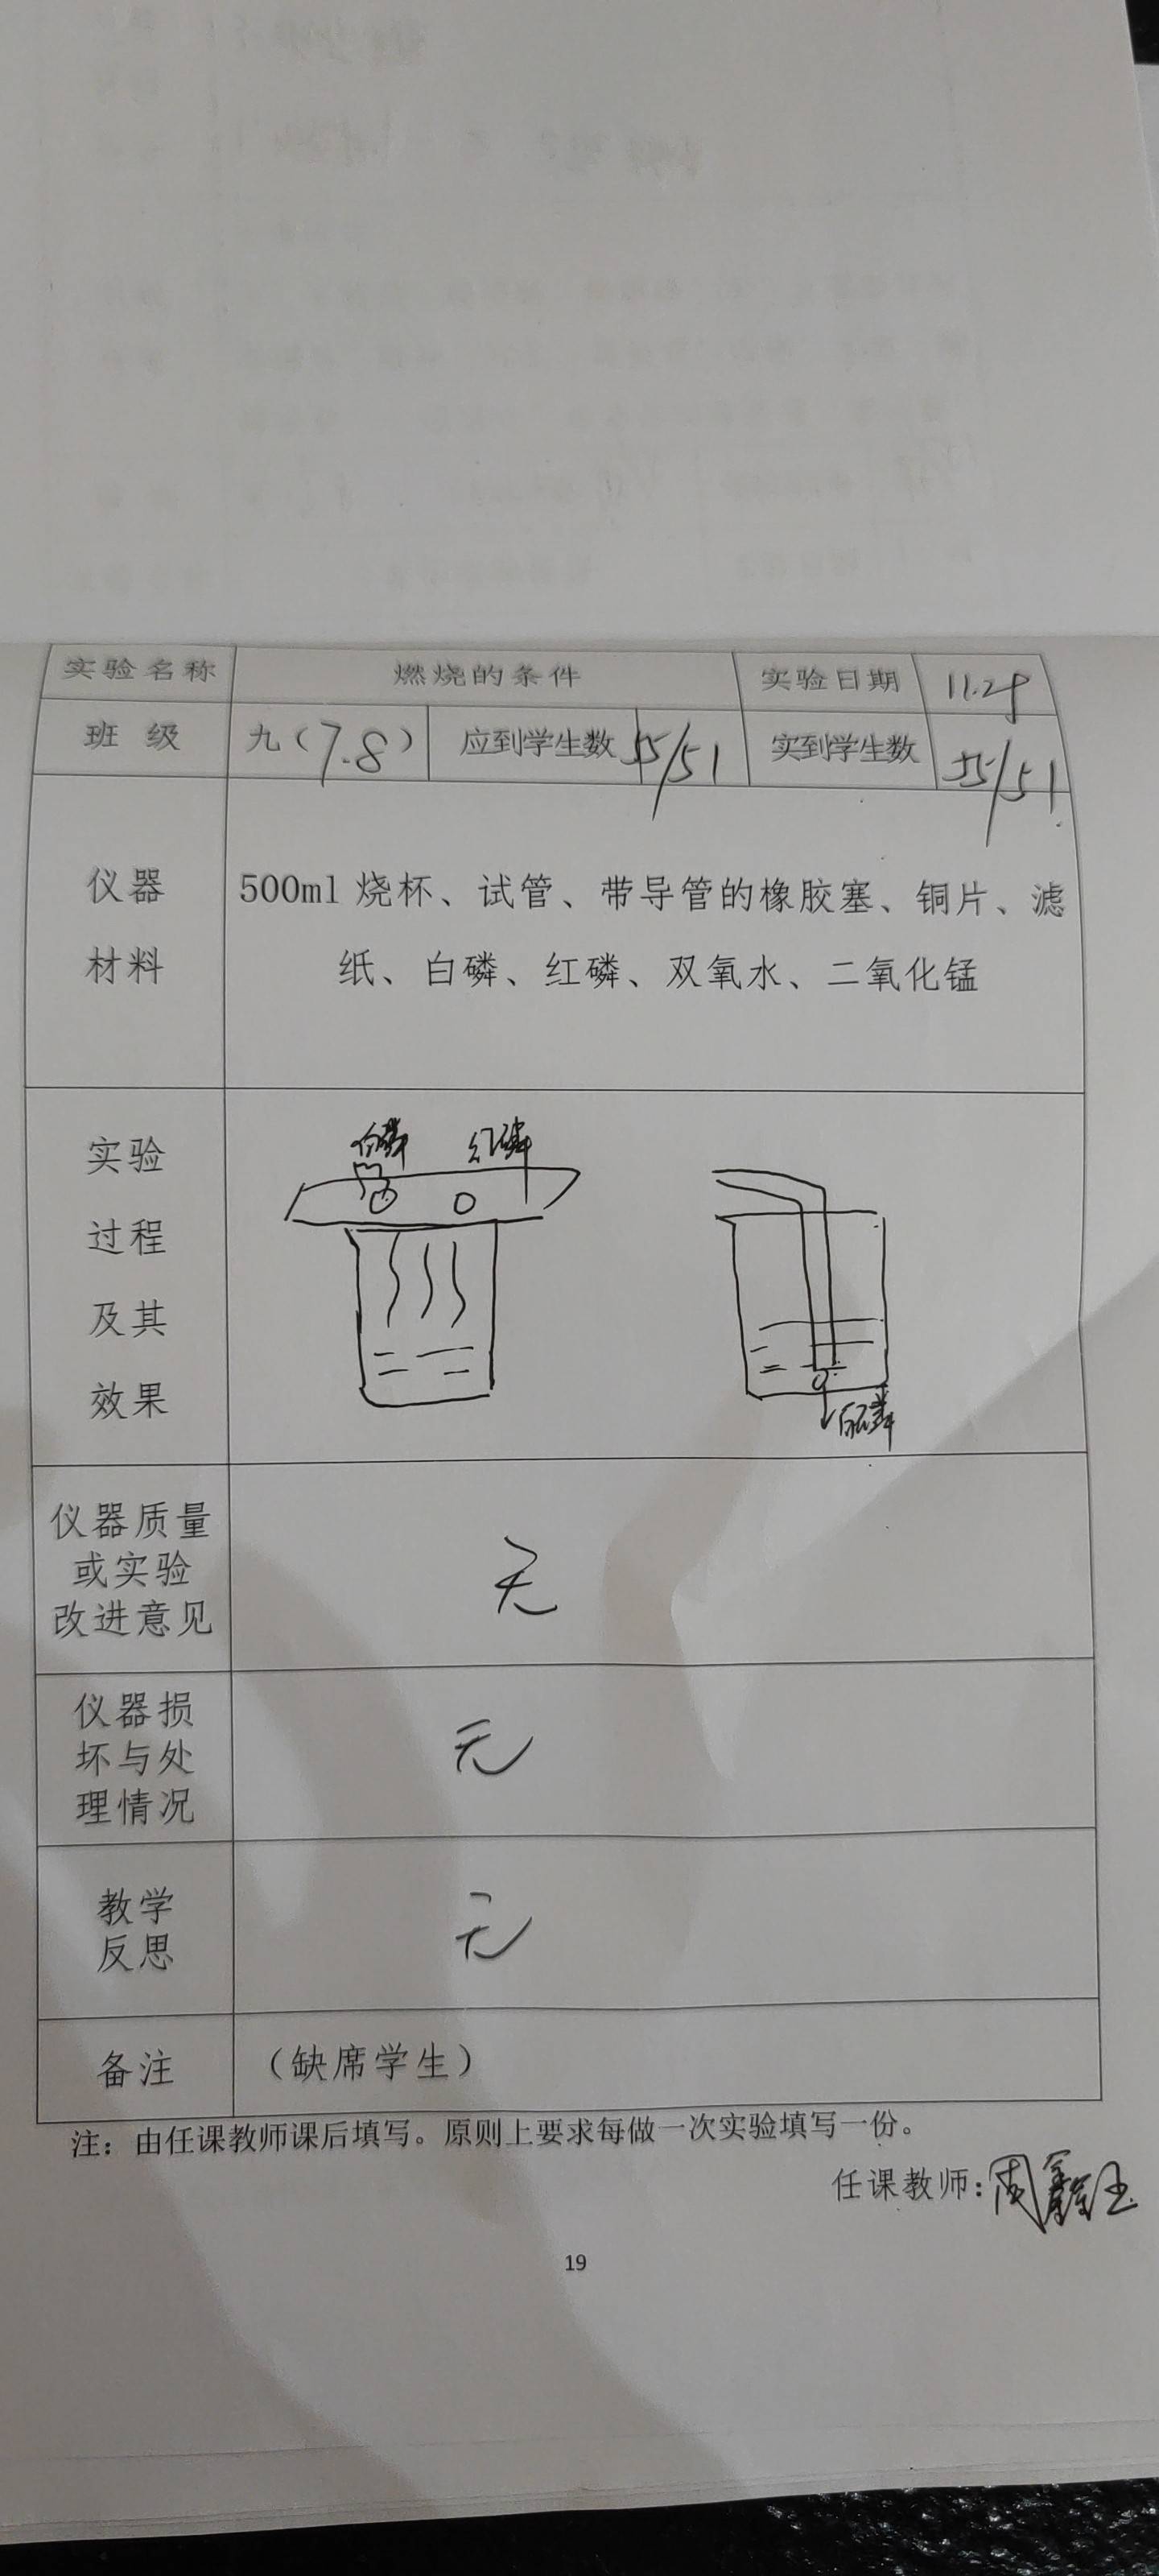 实验名称 燃烧的条件 实验日期 11.29
班 级 九（7.8） 应到学生数 55/51 实到学生数 55/51
仪器
材料
500ml 烧杯、试管、带导管的橡胶塞、铜片、滤
纸、白磷、红磷、双氧水、二氧化锰
实验
过程
及其
效果
白磷 红磷
白磷
仪器质量
或实验
改进意见
无
仪器损
坏与处
理情况
无
教学
反思
无
备注 （缺席学生）
注：由任课教师课后填写。原则上要求每做一次实验填写一份。
任课教师：周鑫玉
19